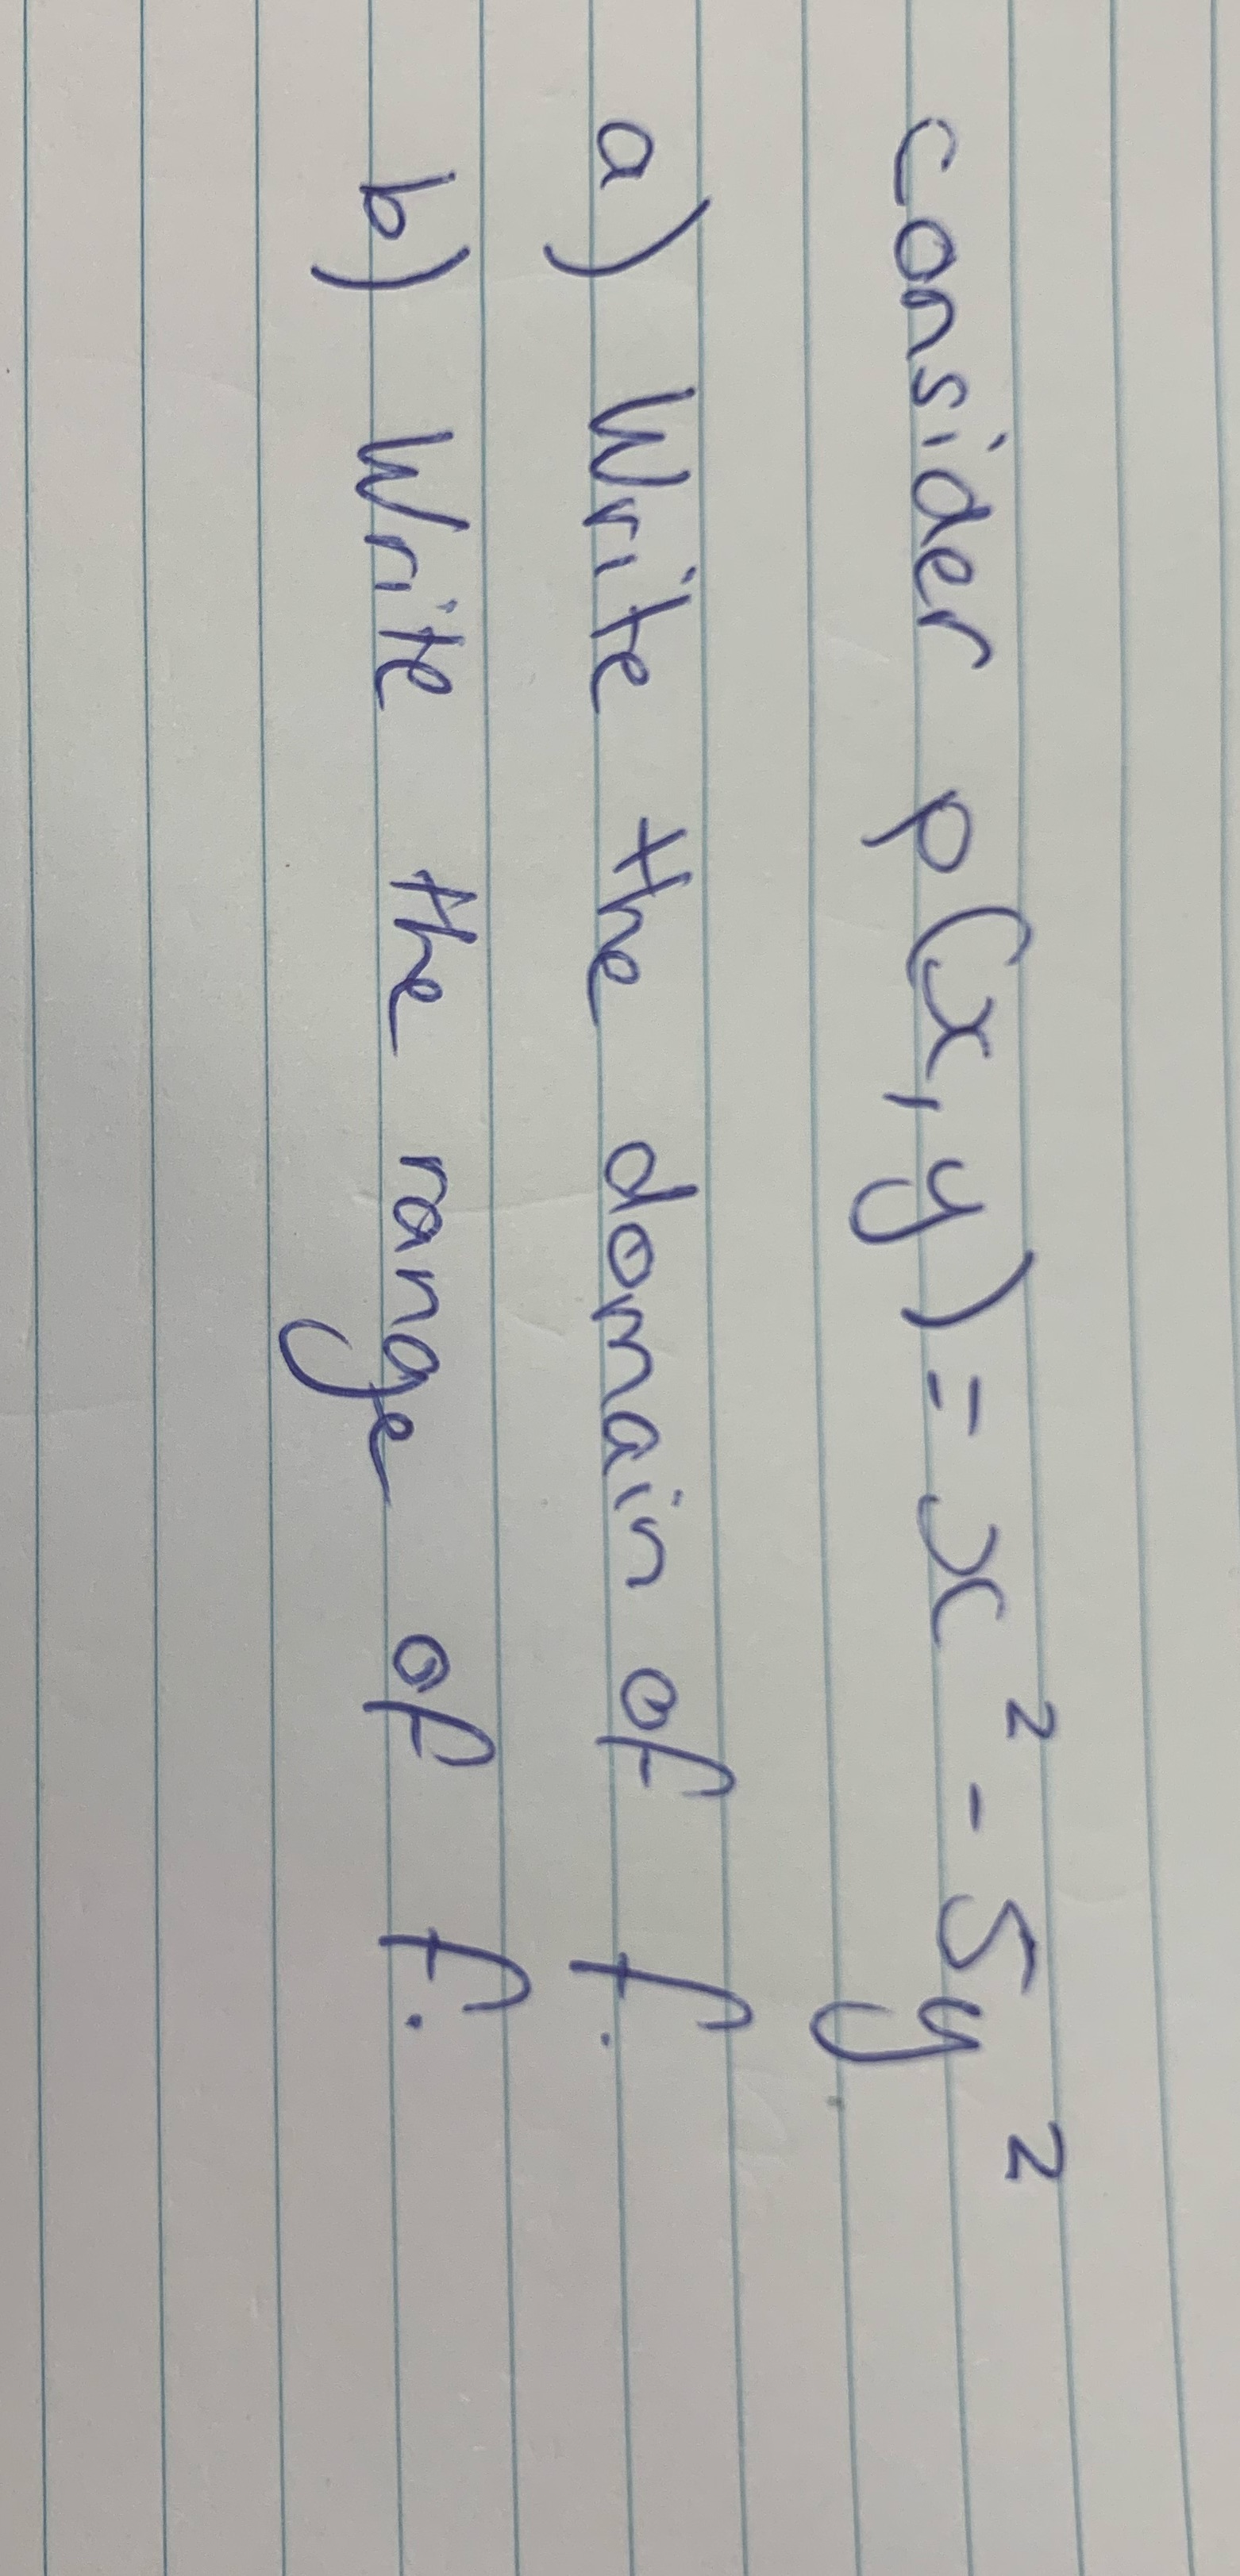 consider p(x,y) = x² - 5y²
a) Write the domain of f.
b) Write the range of f.